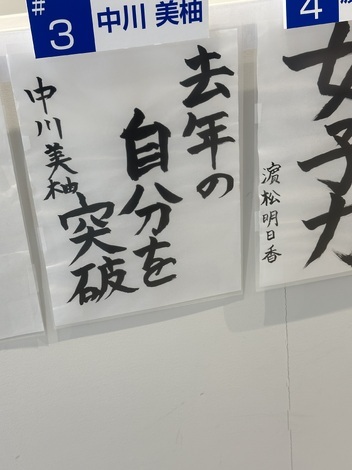 #3 中川 美柚
去年の
自分を
突破
中川美柚
4
女子力
濵松明日香